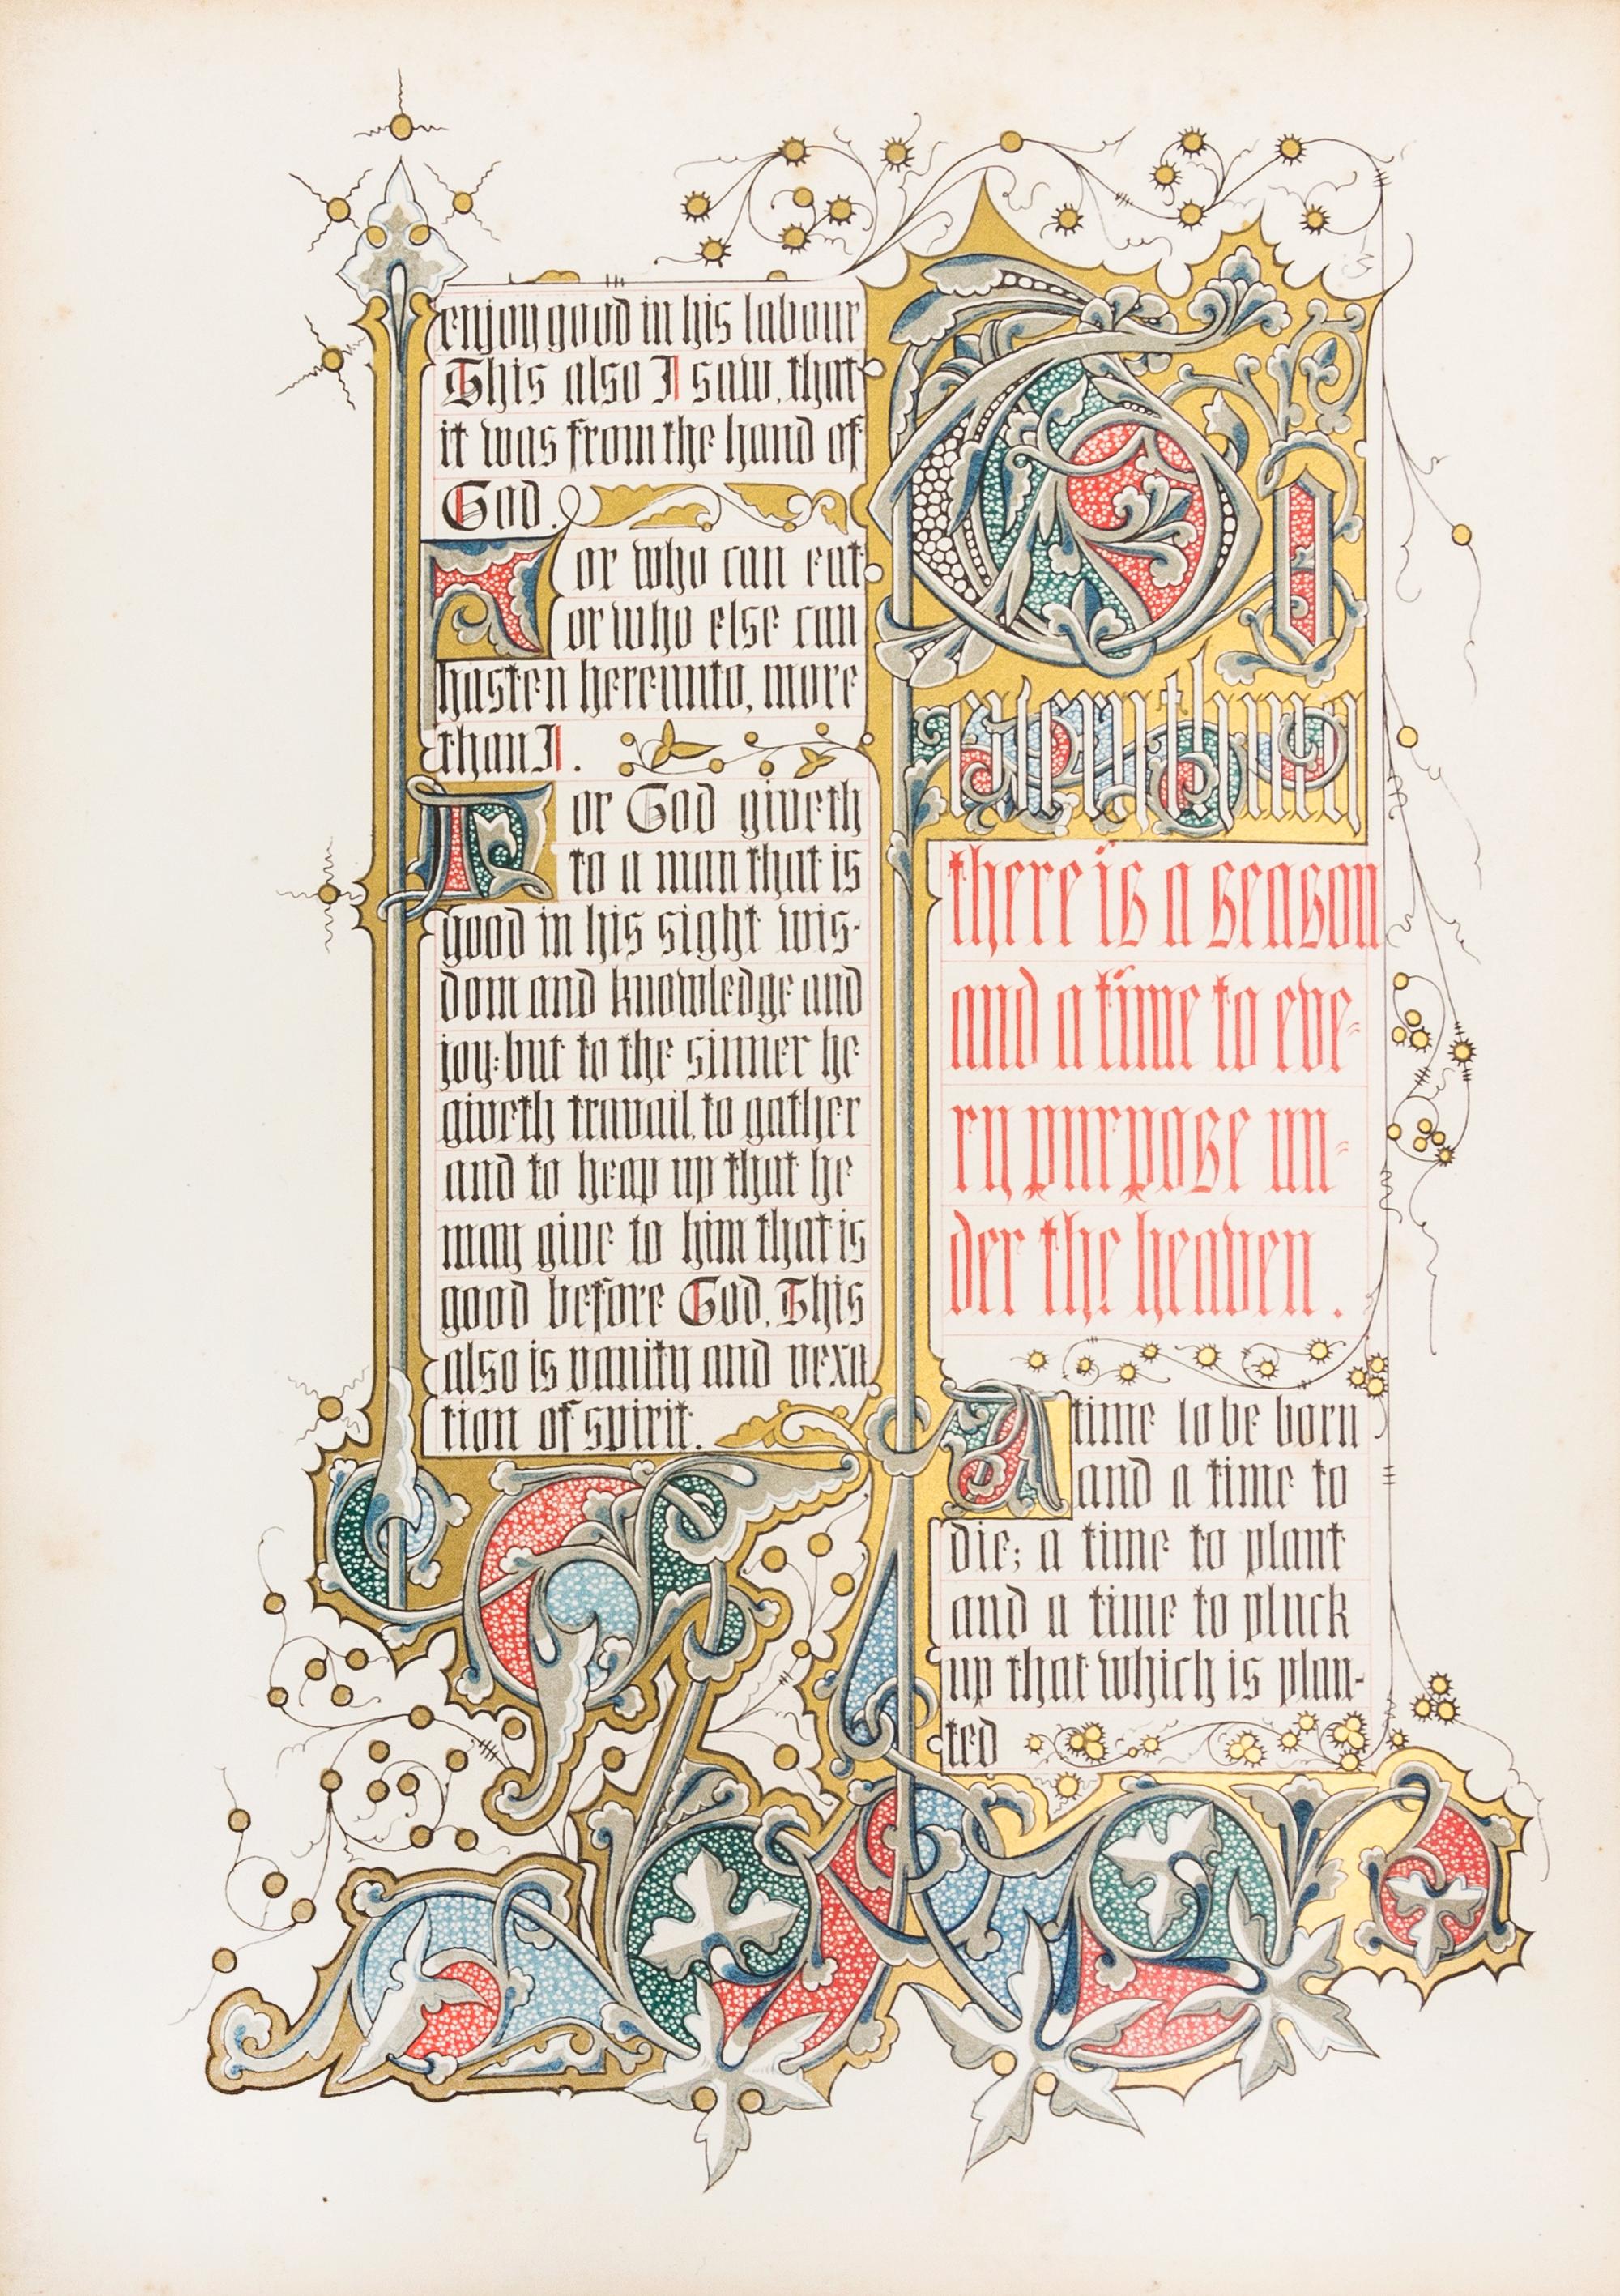 enjoy good in his labour
This also I saw, that
it was from the hand of
God.
For who can eat
or who else can
hasten hereunto, more
than I.
For God giveth
to a man that is
good in his sight wis-
dom and knowledge and
joy: but to the sinner he
giveth travail, to gather
and to heap up that he
may give to him that is
good before God. This
also is vanity and vexa
tion of spirit.
To
everything
there is a season
and a time to eve-
ry purpose un-
der the heaven.
A time to be born
and a time to
die; a time to plant
and a time to pluck
up that which is plan-
ted